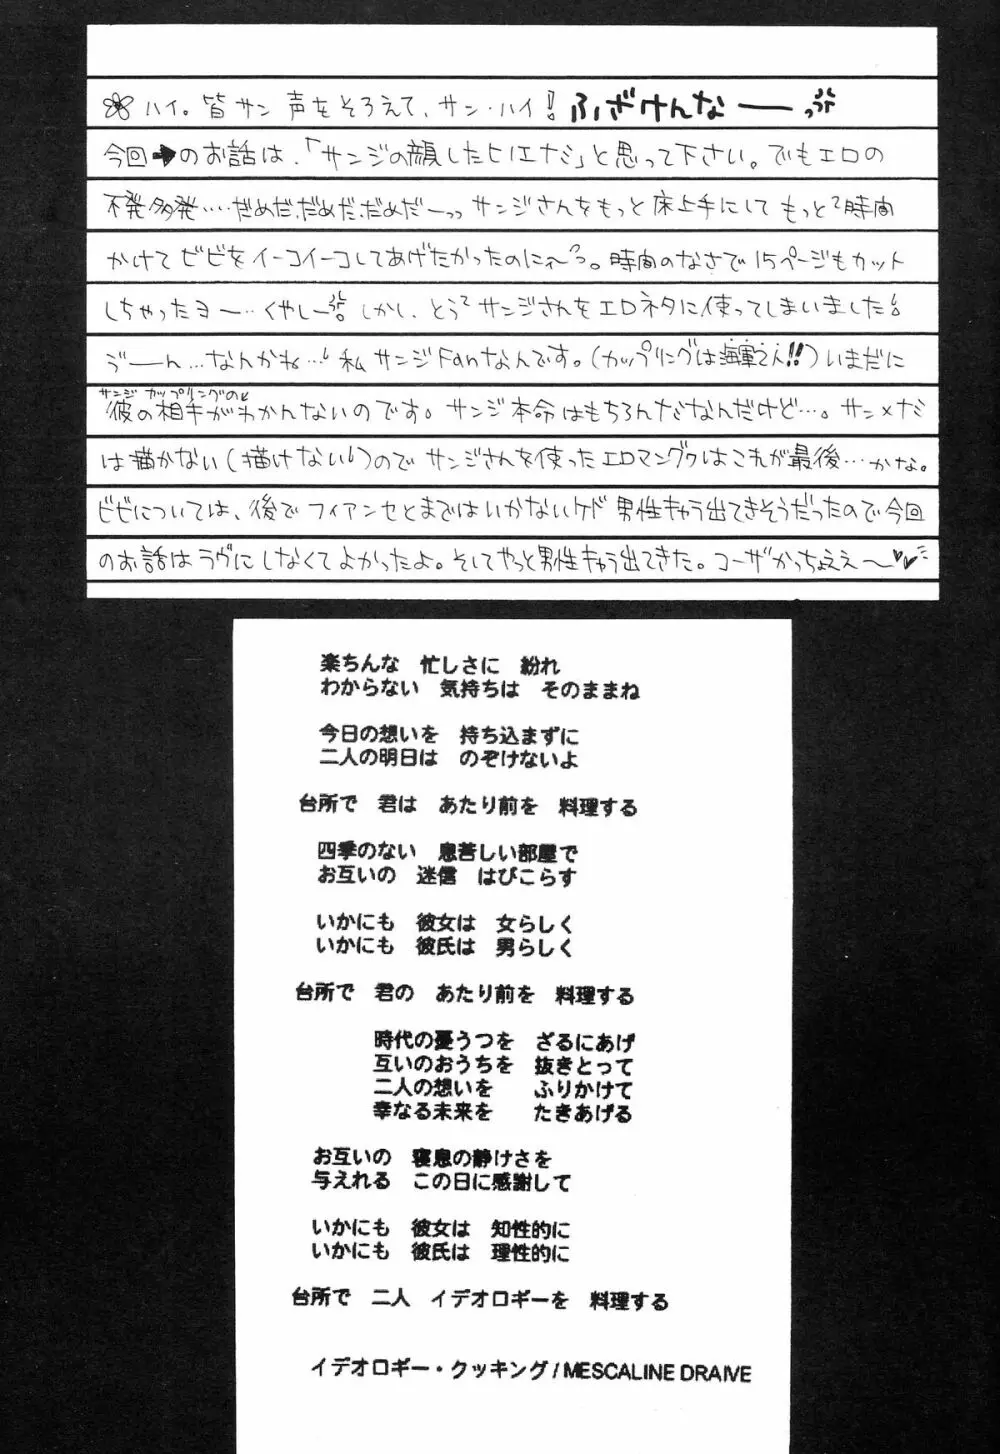 ハイ。皆サン声をそろえて、サン・ハイ! ふざけんなーっ
今回➡のお話は、「サンジの顔したヒノエナミ」と思って下さい。でもエロの
不発多発‥‥だめだ、だめだ、だめだーっっ サンジさんをもっと床上手にして もっと2時間
かけてビビをイーコイーコしてあげたかったのにぇ〜っ。時間のなさで15ページもカット
しちゃったヨー‥くやしー。しかし、とうとうサンジさんをエロネタに使ってしまいました
う゛ーん…なんかね…私サンジFanなんです。(カップリングは海軍さん!!)いまだに
サンジカップリングの
彼の相手がわかんないのです。サンジ本命はもちろんナミなんだけど…。サン×ナミ
は描かない(描けない)のでサンジさんを使ったエロマンガはこれが最後…かな。
ビビについては、後でフィアンセとまではいかないケド男性キャラ出てきそうだったので今回
のお話はラヴにしなくてよかったよ。そしてやっと男性キャラ出てきた。コーザかっちょええ〜
楽ちんな 忙しさに 紛れ
わからない 気持ちは そのままね
今日の想いを 持ち込まずに
二人の明日は のぞけないよ
台所で 君は あたり前を 料理する
四季のない 息苦しい部屋で
お互いの 迷信 はびこらす
いかにも 彼女は 女らしく
いかにも 彼氏は 男らしく
台所で 君の あたり前を 料理する
時代の憂うつを ざるにあげ
互いのおうちを 抜きとって
二人の想いを ふりかけて
幸なる未来を たきあげる
お互いの 寝息の静けさを
与えれる この日に感謝して
いかにも 彼女は 知性的に
いかにも 彼氏は 理性的に
台所で 二人 イデオロギーを 料理する
イデオロギー・クッキング/MESCALINE DRAIVE